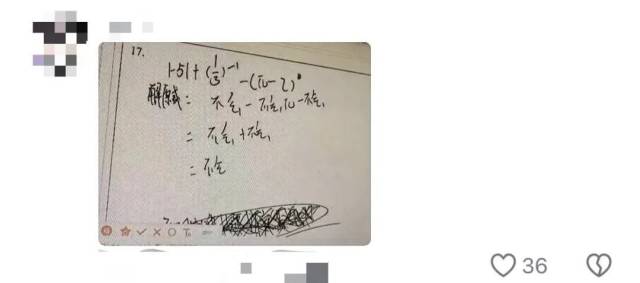 17.
|-5| + (1/3)⁻¹ - (π-2)⁰
解原式 = 不会, - 不会, π - 不会,
= 不会, + 不会,
= 不会
36